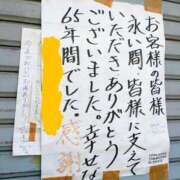 お客様の皆様
永い間、皆様に支えて
いただきありがとう
ございました。幸せな
65年間でした。
感謝